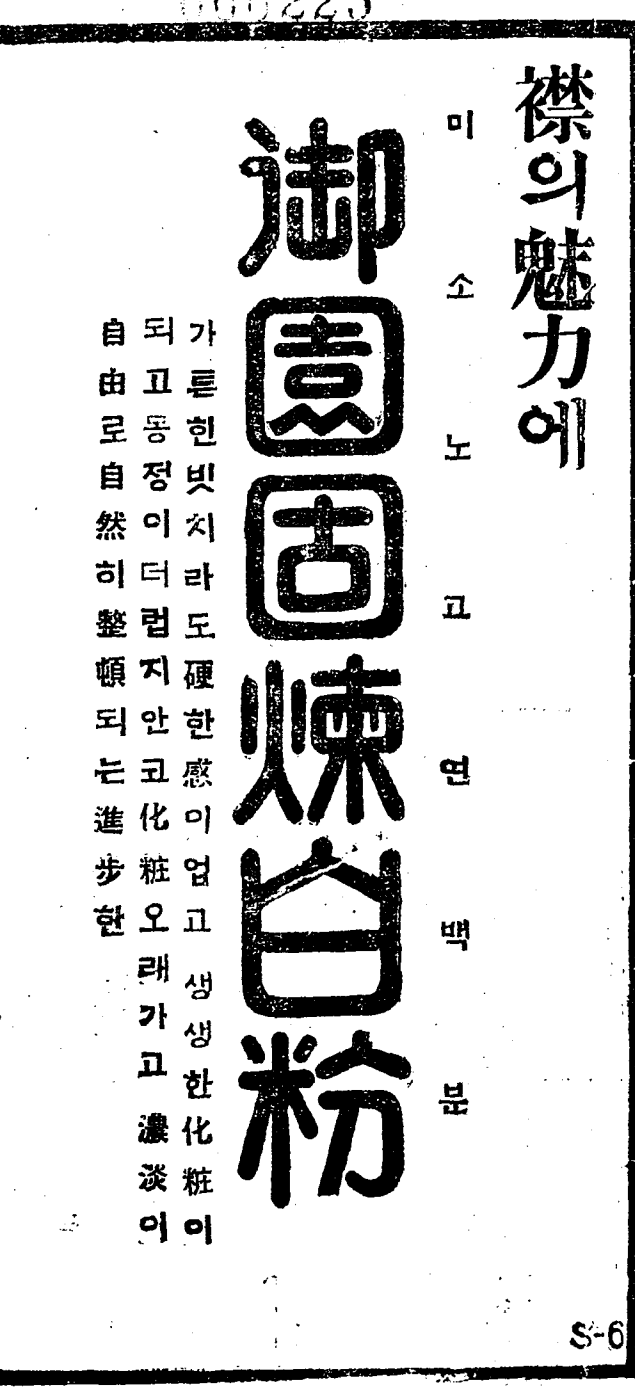 襟의魅力에
미소노고연백분
御園固煉白粉
가튼힌빗치라도硬한感이업고 생생한化粧이
되고동정이더럽지안코化粧오래가고濃淡이
自由로自然히整頓되는進步한
S-6